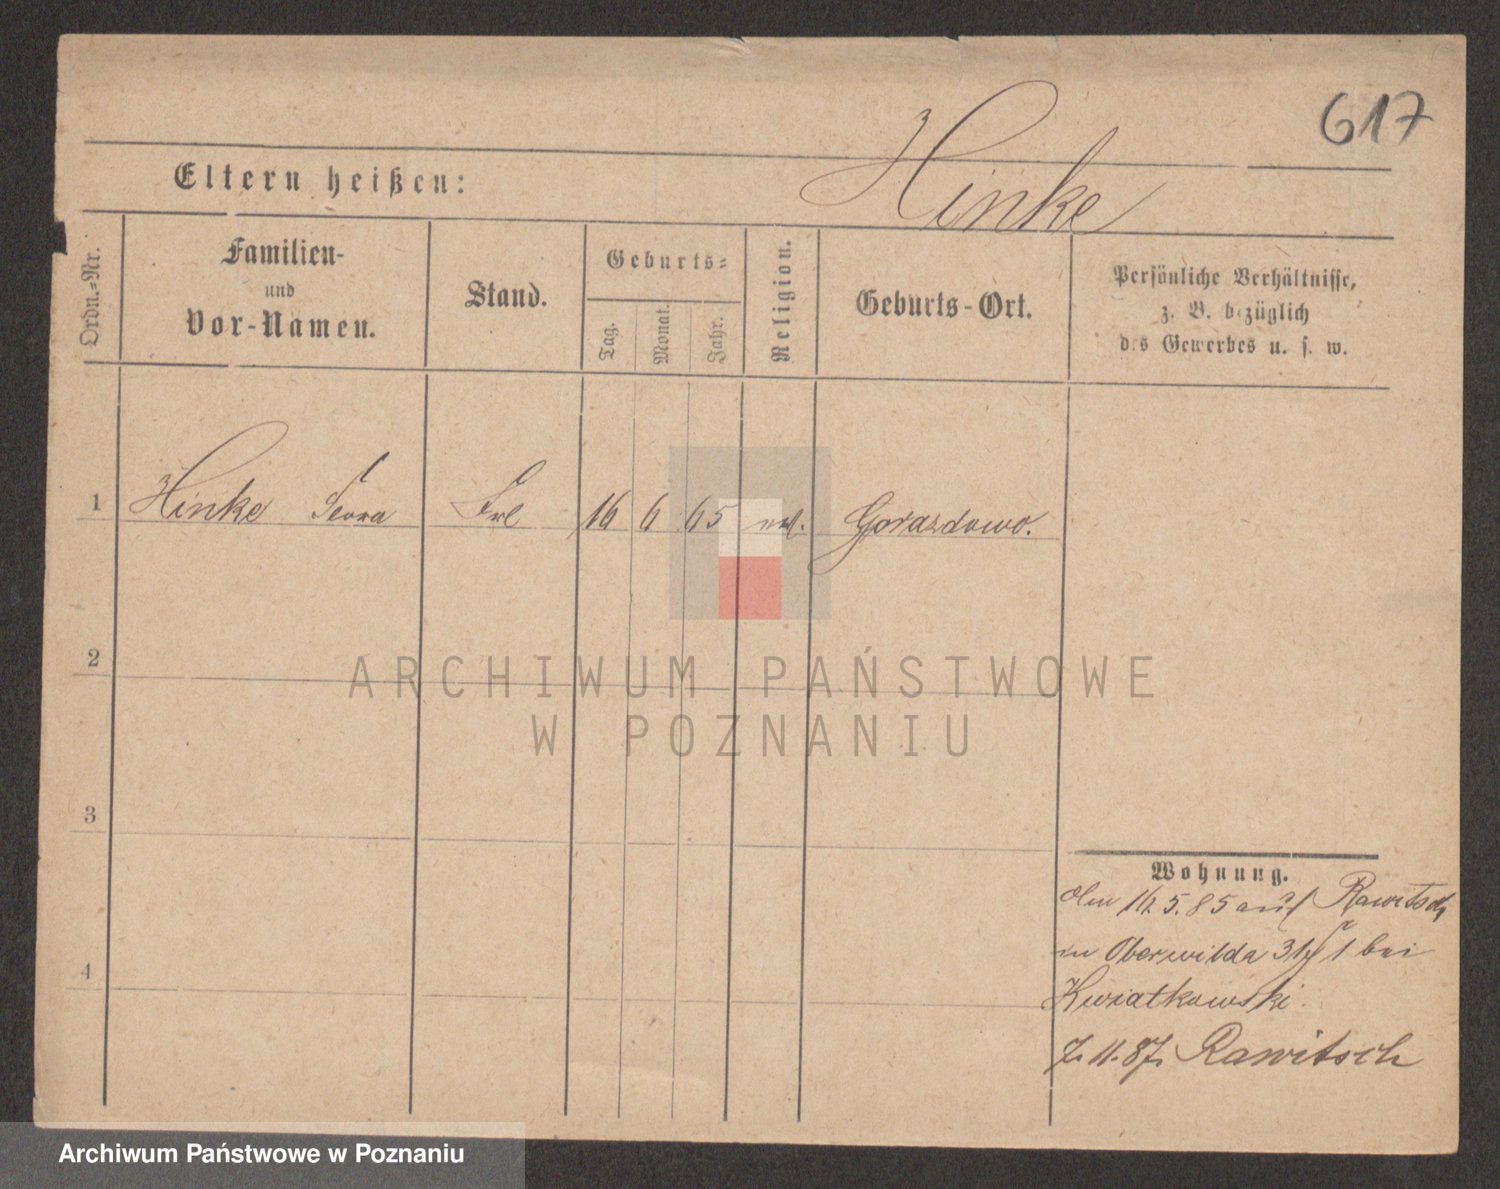 617
Hinke
Eltern heißen:
Ordn.=Nr.
Familien-
und
Vor-Namen.
Stand.
Geburts=
Tag.
Monat.
Jahr.
Religion.
Geburts-Ort.
Persönliche Verhältnisse,
z. B. bezüglich
des Gewerbes u. s. w.
1 Hinke Frl 16 6 65 Gorazdowo.
2
3
4
ARCHIWUM PAŃSTWOWE
W POZNANIU
Wohnung.
16.5.85 auf Rawitsch
in Oberwilda 31 1 bei
Kwiatkowski.
7. 11. 87. Rawitsch
Archiwum Państwowe w Poznaniu